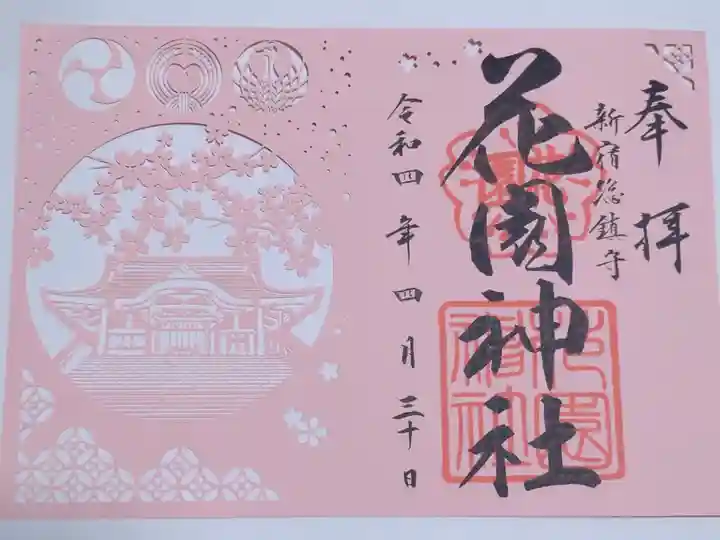 奉拝
新宿総鎮守
花園神社
花園
花園神社
令和四年四月三十日